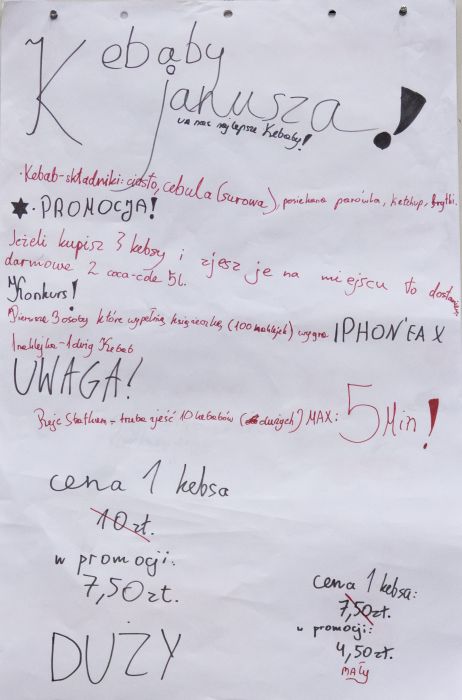 Kebaby
janusza!
u nas najlepsze Kebaby!
·Kebab-składniki: ciasto, cebula (surowa), posiekana parówka, ketchup, frytki.
· PROMOCJA!
Jeżeli kupisz 3 kebsy i zjesz je na miejscu to dostaniesz
darmowe 2 coca-cole 5l.
Konkurs!
Pierwsze 3 osoby które wypełnią książeczkę (100 naklejek) wygra IPHON'EA X
1 naklejka-1 duży Kebab
UWAGA!
Rejs Statkiem = trzeba zjeść 10 kebabów (dużych) MAX: 5 Min!
cena 1 kebsa
10 zł.
w promocji:
7,50 zt.
DUŻY
cena 1 kebsa:
7,50 zł.
w promocji:
4,50 zt.
MAŁY